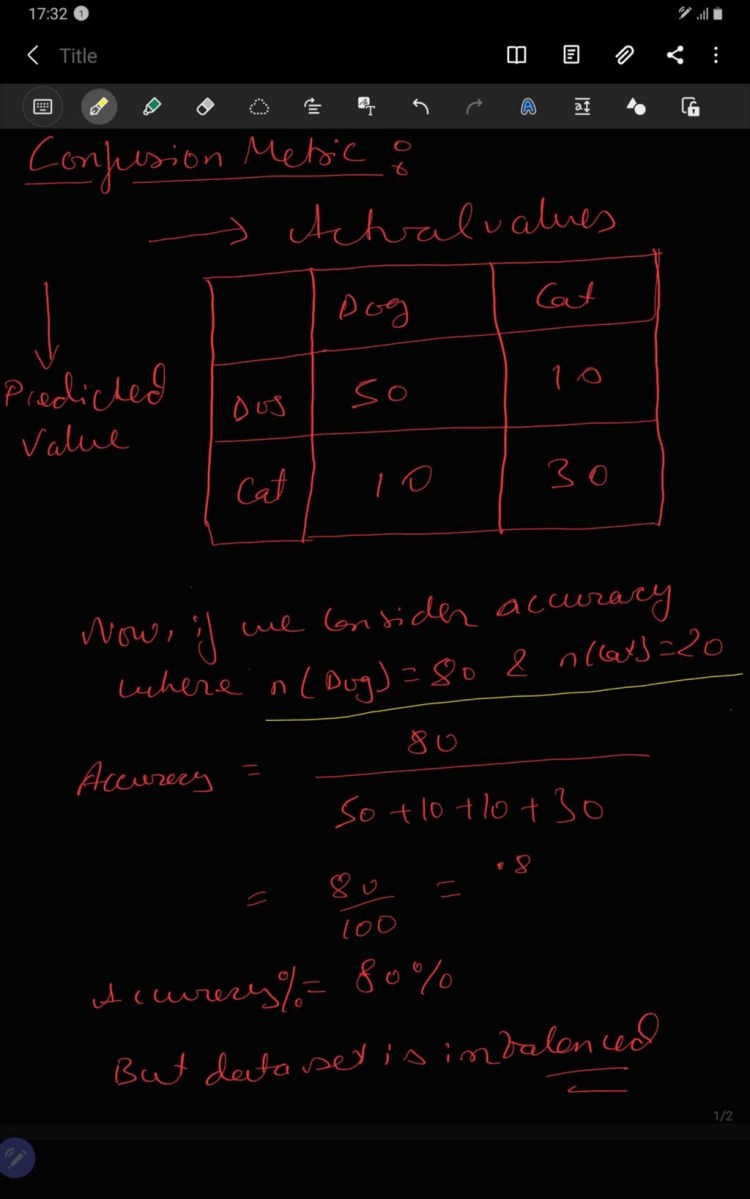 17:32 1
Title
Confusion Metric :
→ Actual values
Dog Cat
Predicted Value
Dog 50 10
Cat 10 30
Now, if we consider accuracy
where n(Dog)=80 & n(Cat)=20
Accuracy = 80
50+10+10+30
= 80 = .8
100
Accuracy%= 80%
But dataset is imbalenced
1/2